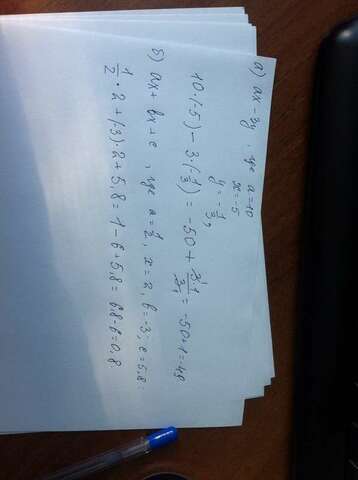 а) ax - 3y , где a = 10
x = -5
y = -1/3,
10·(-5) - 3·(-1/3) = -50 + 3·1/3·1 = -50+1=-49
б) ax + bx + c , где a = 1/2, x = 2, b = -3; c = 5,8:
1/2 · 2 + (-3)·2 + 5,8 = 1 - 6 + 5,8 = 6,8 - 6 = 0,8